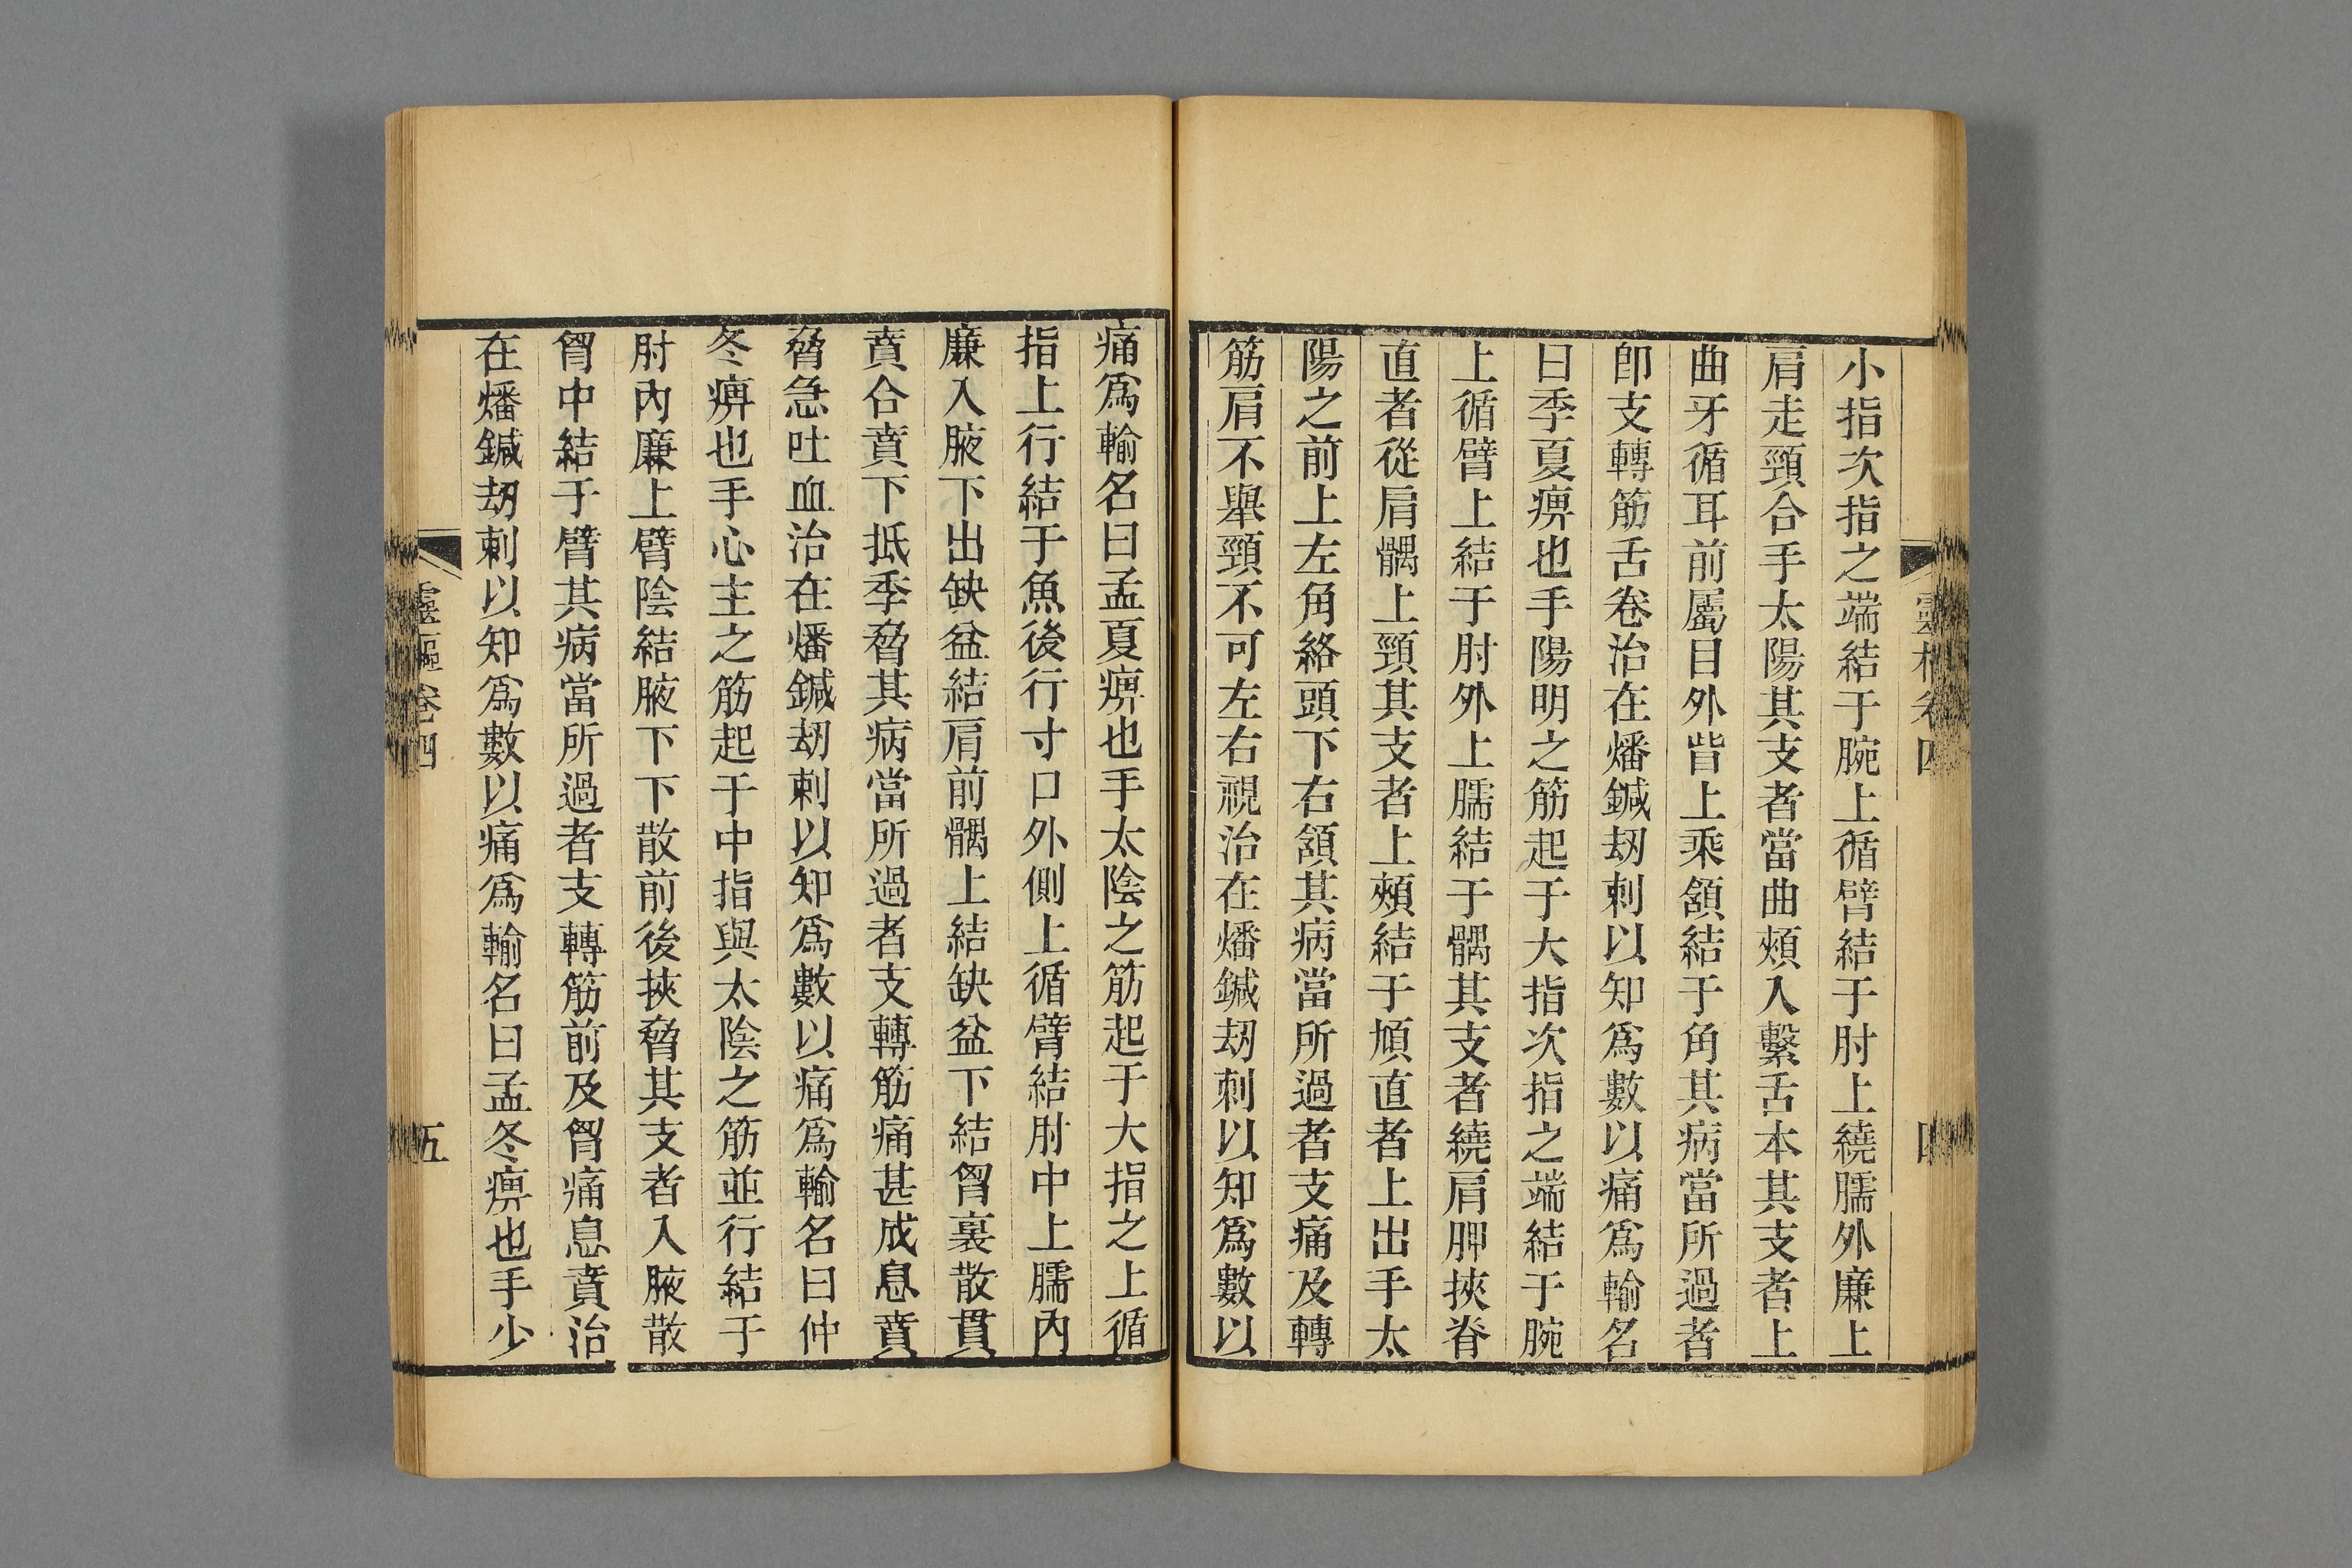 小指次指之端結于腕上循臂結于肘上繞臑外廉上
肩走頸合手太陽其支者當曲頰入繫舌本其支者上
曲牙循耳前屬目外眥上乘頷結于角其病當所過者
卽支轉筋舌卷治在燔鍼刼刺以知爲數以痛爲輸名
曰季夏痹也手陽明之筋起于大指次指之端結于腕
上循臂上結于肘外上臑結于髃其支者繞肩胛挾脊
直者從肩髃上頸其支者上頰結于頄直者上出手太
陽之前上左角絡頭下右頷其病當所過者支痛及轉
筋肩不舉頸不可左右視治在燔鍼刼刺以知爲數以
靈樞卷四
痛爲輸名曰孟夏痹也手太陰之筋起于大指之上循
指上行結于魚後行寸口外側上循臂結肘中上臑內
廉入腋下出缺盆結肩前髃上結缺盆下結胷裏散貫
賁合賁下抵季脅其病當所過者支轉筋痛甚成息賁
脅急吐血治在燔鍼刼刺以知爲數以痛爲輸名曰仲
冬痹也手心主之筋起于中指與太陰之筋並行結于
肘內廉上臂陰結腋下下散前後挾脅其支者入腋散
胷中結于臂其病當所過者支轉筋前及胷痛息賁治
在燔鍼刼刺以知爲數以痛爲輸名曰孟冬痹也手少
靈樞卷四
五